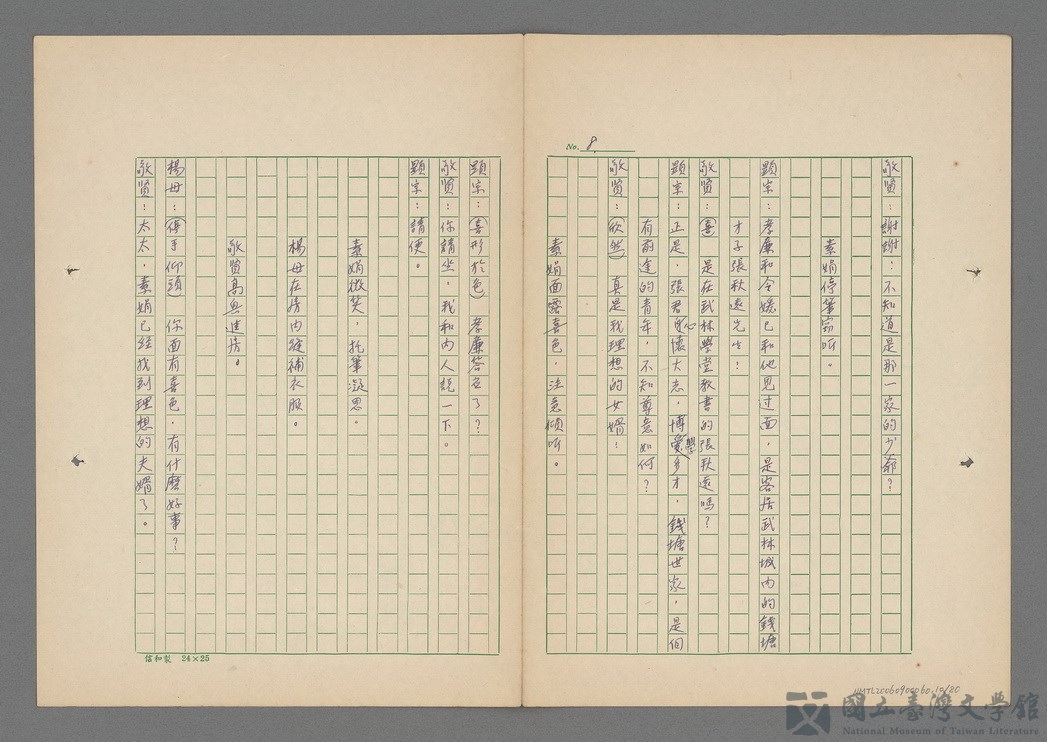 No. 8
敬賢：謝謝：不知道是那一家的少爺？
素娟停筆窃听。
顕宗：孝廉和令媛已和他見过面，是客居武林城内的錢塘
才子張秋遠先生！
敬賢：（喜）是在武林學堂教書的張秋遠嗎？
顕宗：正是，張君心懷大志，博學多才，錢塘世家，是個
有前途的青年，不知尊意如何？
敬賢：（欣然）真是我理想的女婿！
素娟面露喜色，注意傾听。
顕宗：（喜形於色）孝廉答应了？
敬賢：你請坐，我和内人説一下。
顕宗：請便。
素娟微笑，托筆凝思。
楊母在房内縫補衣服。
敬賢高興進房。
楊母：（停手仰頭）你面有喜色，有什麼好事？
敬賢：太太，素娟已經找到理想的夫婿了。
信和製 24×25
NMTL20060900060.10/80
國立臺灣文學館
National Museum of Taiwan Literature